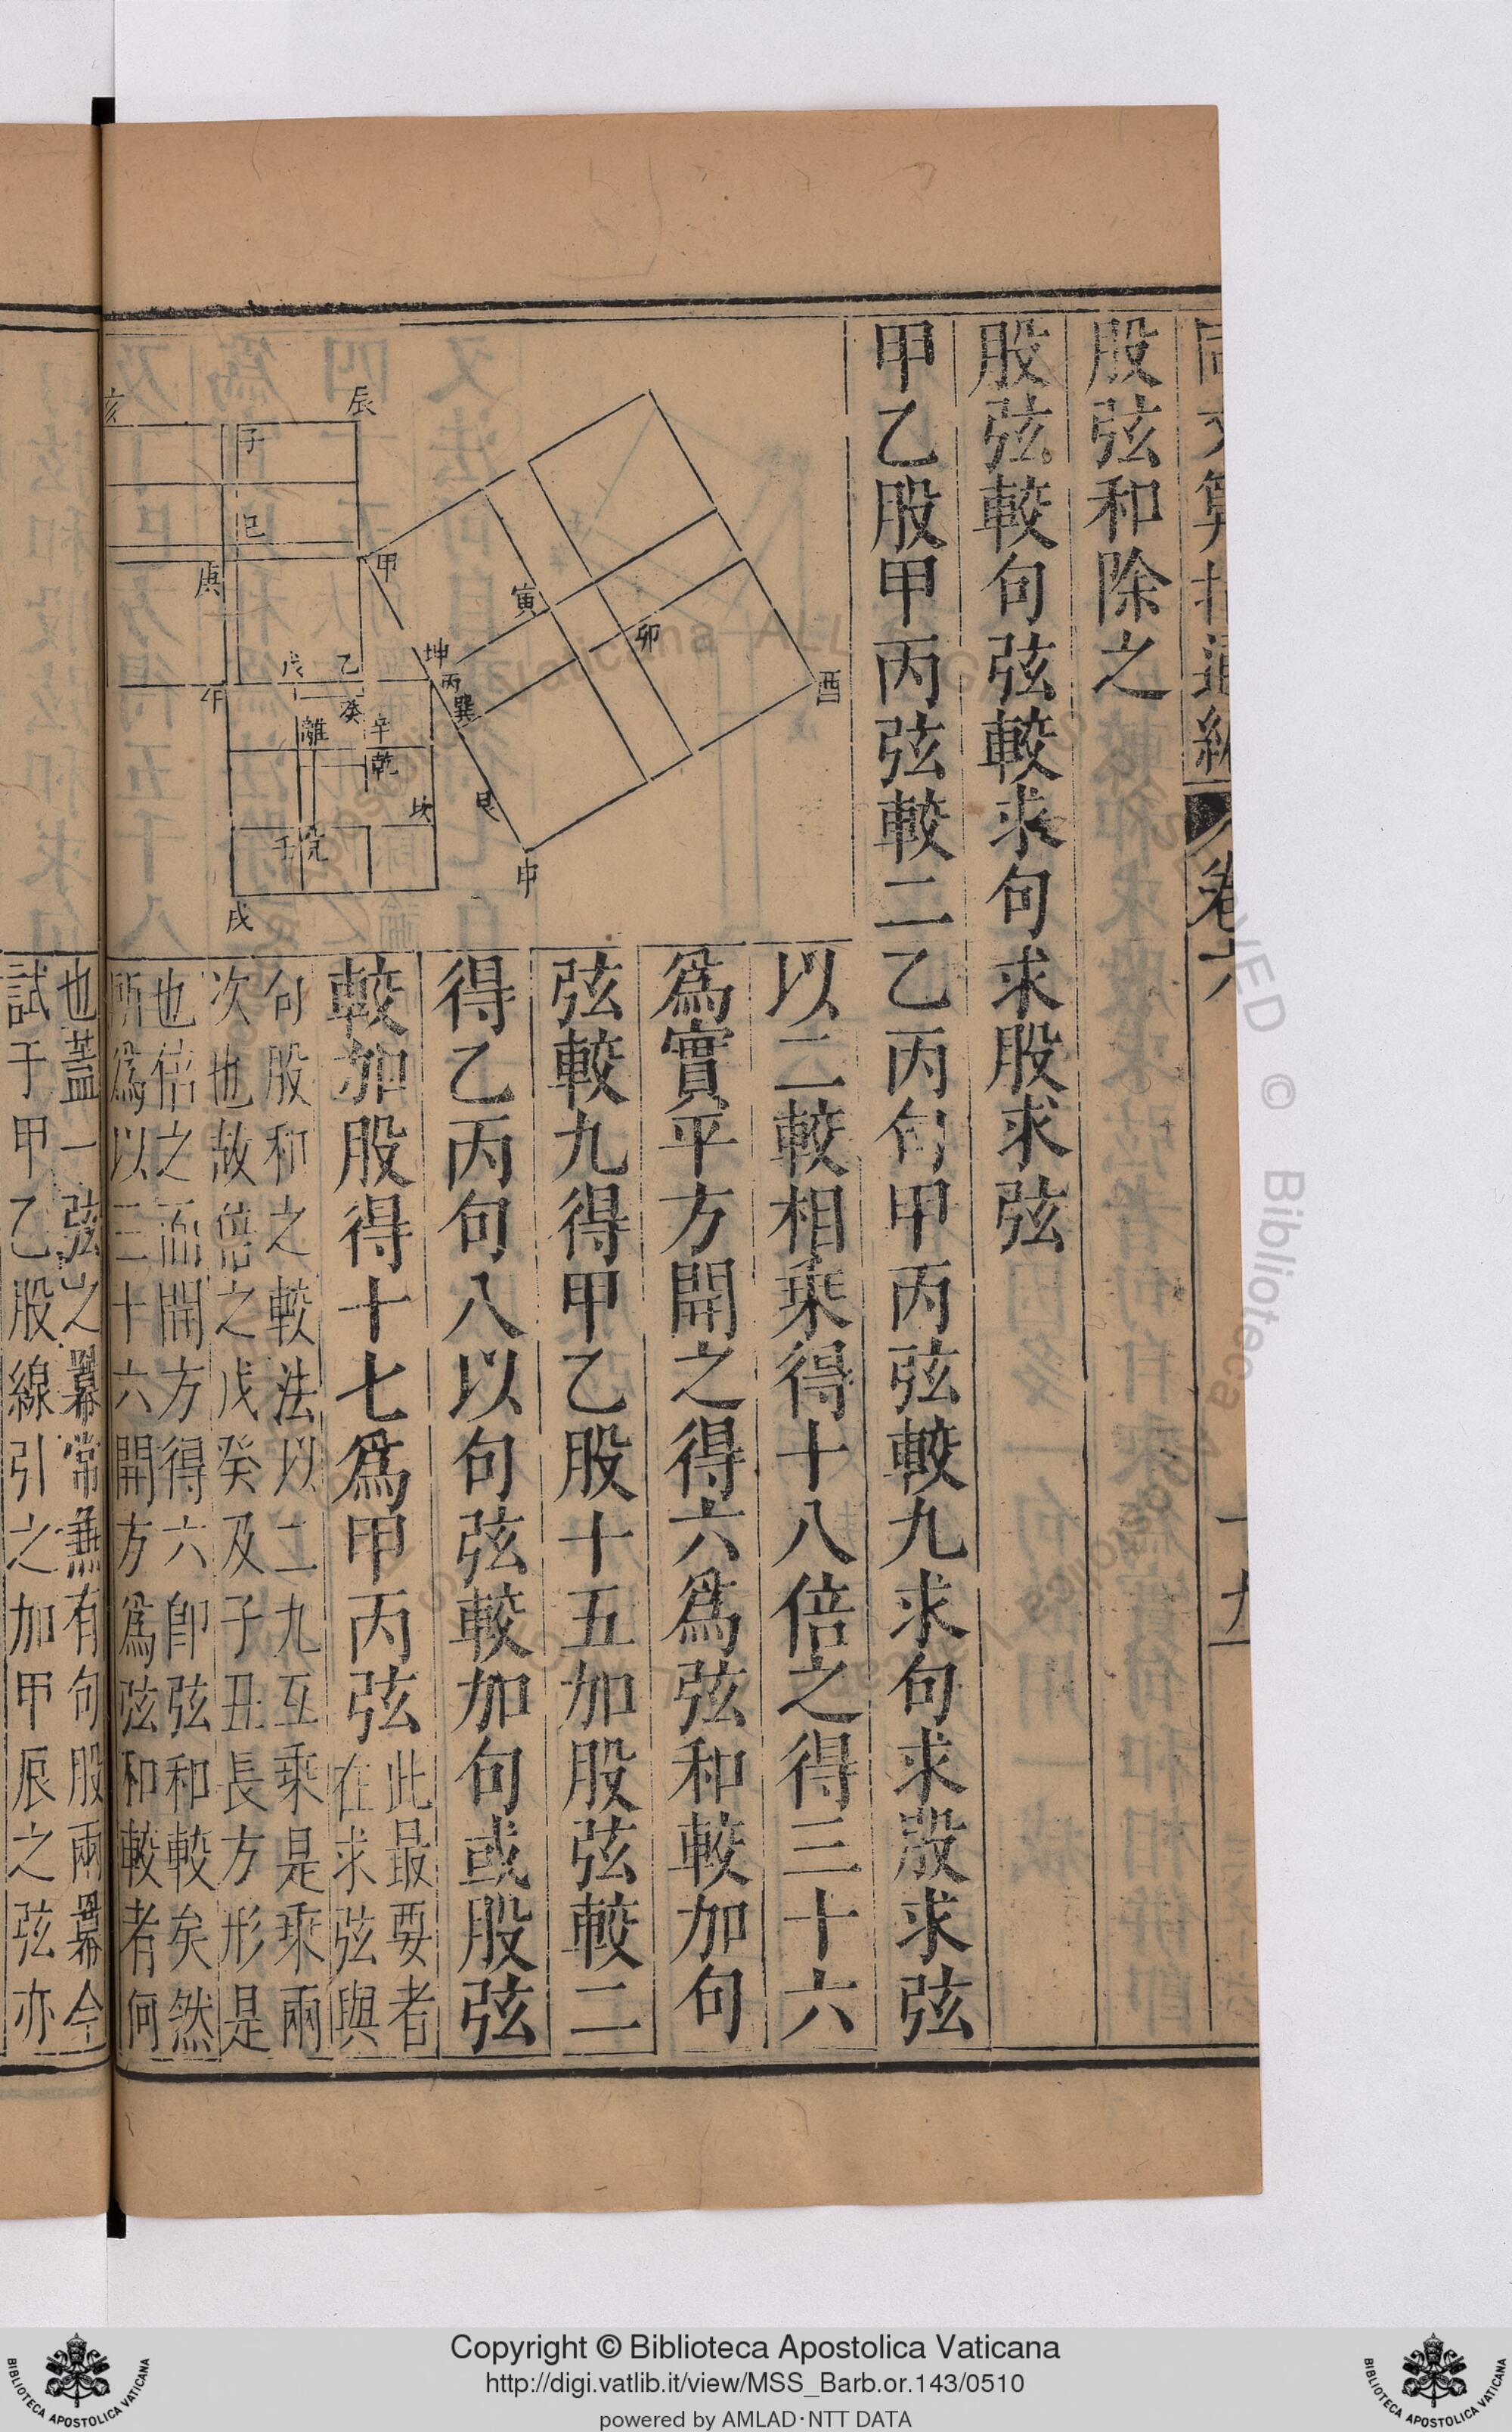 卷六
十九
股弦和除之
股弦較句弦較求句求股求弦
甲乙股甲丙弦較二乙丙句甲丙弦較九求句求股求弦
辰
亥
子
巳
甲
庚
寅
卯
酉
坤
丙
巽
戊
乙
癸
午
離
辛
乾
坎
艮
壬
兌
申
戌
以二較相乘得十八倍之得三十六
爲實平方開之得六爲弦和較加句
弦較九得甲乙股十五加股弦較二
得乙丙句八以句弦較加句或股弦
較加股得十七爲甲丙弦
此最要者
在求弦與
句股和之較法以二九互乘是乘兩
次也故倍之戊癸及子丑長方形是
也倍之而開方得六卽弦和較矣然
所爲以三十六開方爲弦和較者何
也蓋一弦之羃常兼有句股兩羃今
試于甲乙股線引之加甲辰之弦亦
Copyright © Biblioteca Apostolica Vaticana
http://digi.vatlib.it/view/MSS_Barb.or.143/0510
powered by AMLAD·NTT DATA
BIBLIOTECA APOSTOLICA VATICANA
BIBLIOTECA APOSTOLICA VATICANA